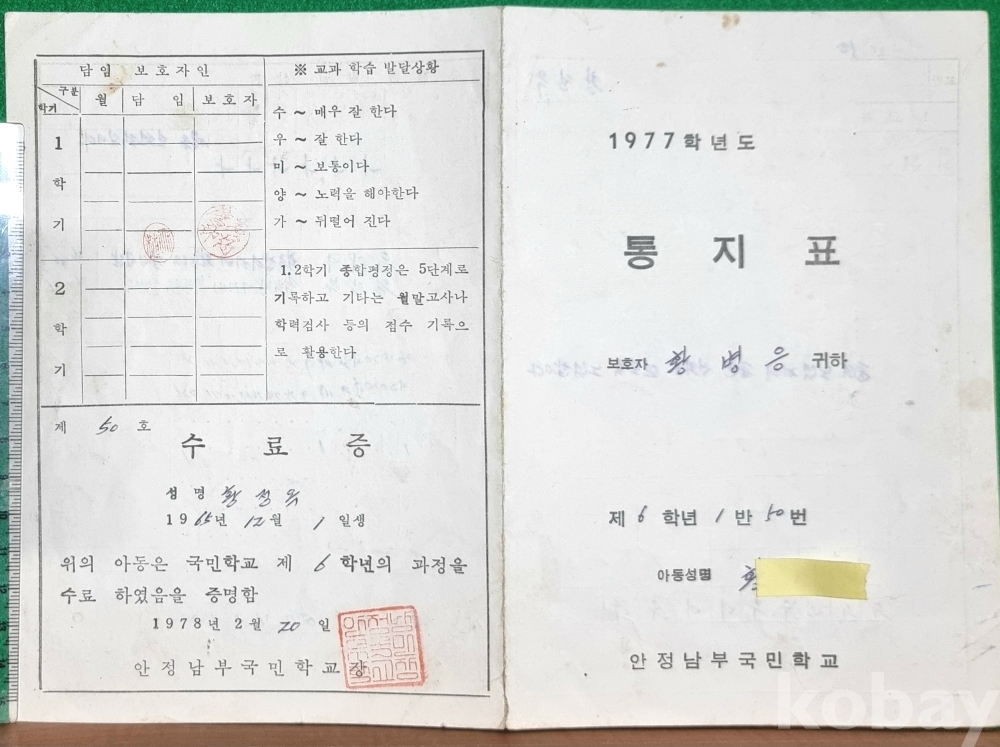 담임 보호자인
구분
학기
월
담 임
보호자
1
학
기
2
학
기
※ 교과 학습 발달상황
수 ~ 매우 잘 한다
우 ~ 잘 한다
미 ~ 보통이다
양 ~ 노력을 해야한다
가 ~ 뒤떨어 진다
1.2학기 종합평정은 5단계로
기록하고 기타는 월말고사나
학력검사 등의 점수 기록으
로 활용한다
제 50 호
수 료 증
성 명 황
1965년 12월 1일생
위의 아동은 국민학교 제 6 학년의 과정을
수료 하였음을 증명함
1978년 2월 20일
안정남부국민학교장
1977학년도
통 지 표
보호자 황병응 귀하
제 6 학년 1 반 50번
아동성명 황
안정남부국민학교
kobay